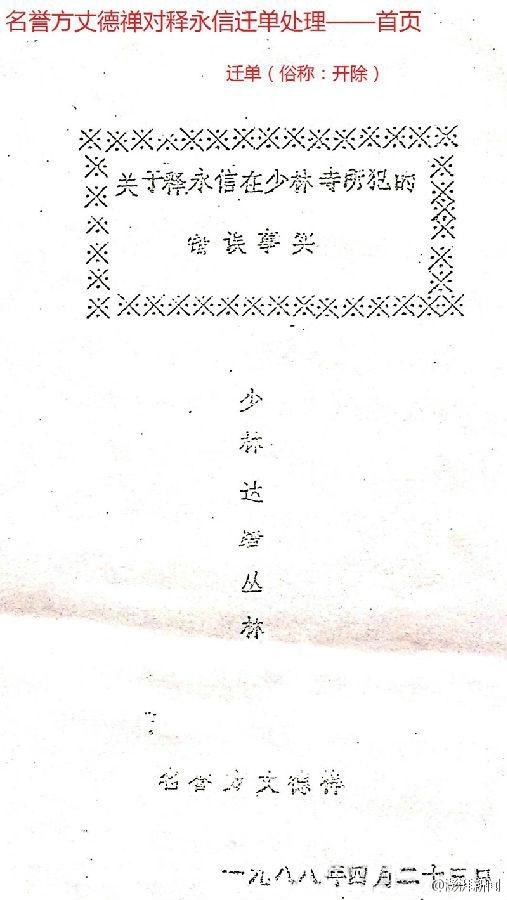 名誉方丈德禅对释永信迁单处理——首页
迁单（俗称：开除）
关于释永信在少林寺所犯的
错误事实
少林达摩丛林
名誉方丈德禅
一九八八年四月二十三日
@澎湃新闻